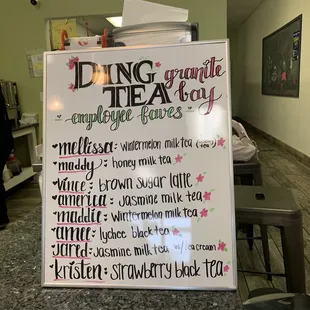 DING TEA granite bay
employee faves
mellissa: watermelon milk tea
maddy: honey milk tea
vince: brown sugar latte
america: Jasmine milk tea
maddie: Watermelon milk tea
amee: lychee black tea
Jared: Jasmine milk tea w/ tea cream
kristen: strawberry black tea